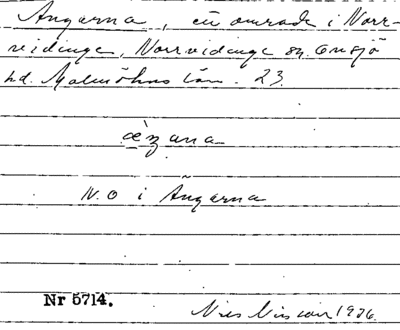 Ängarna, ett område i Norr-
vidinge, Norrvidinge sn. Onsjö
hd. Malmöhus län. 23.
æ̀ŋana
N.O i Ängarna
Nr 5714.
Nils Nilsson 1936.